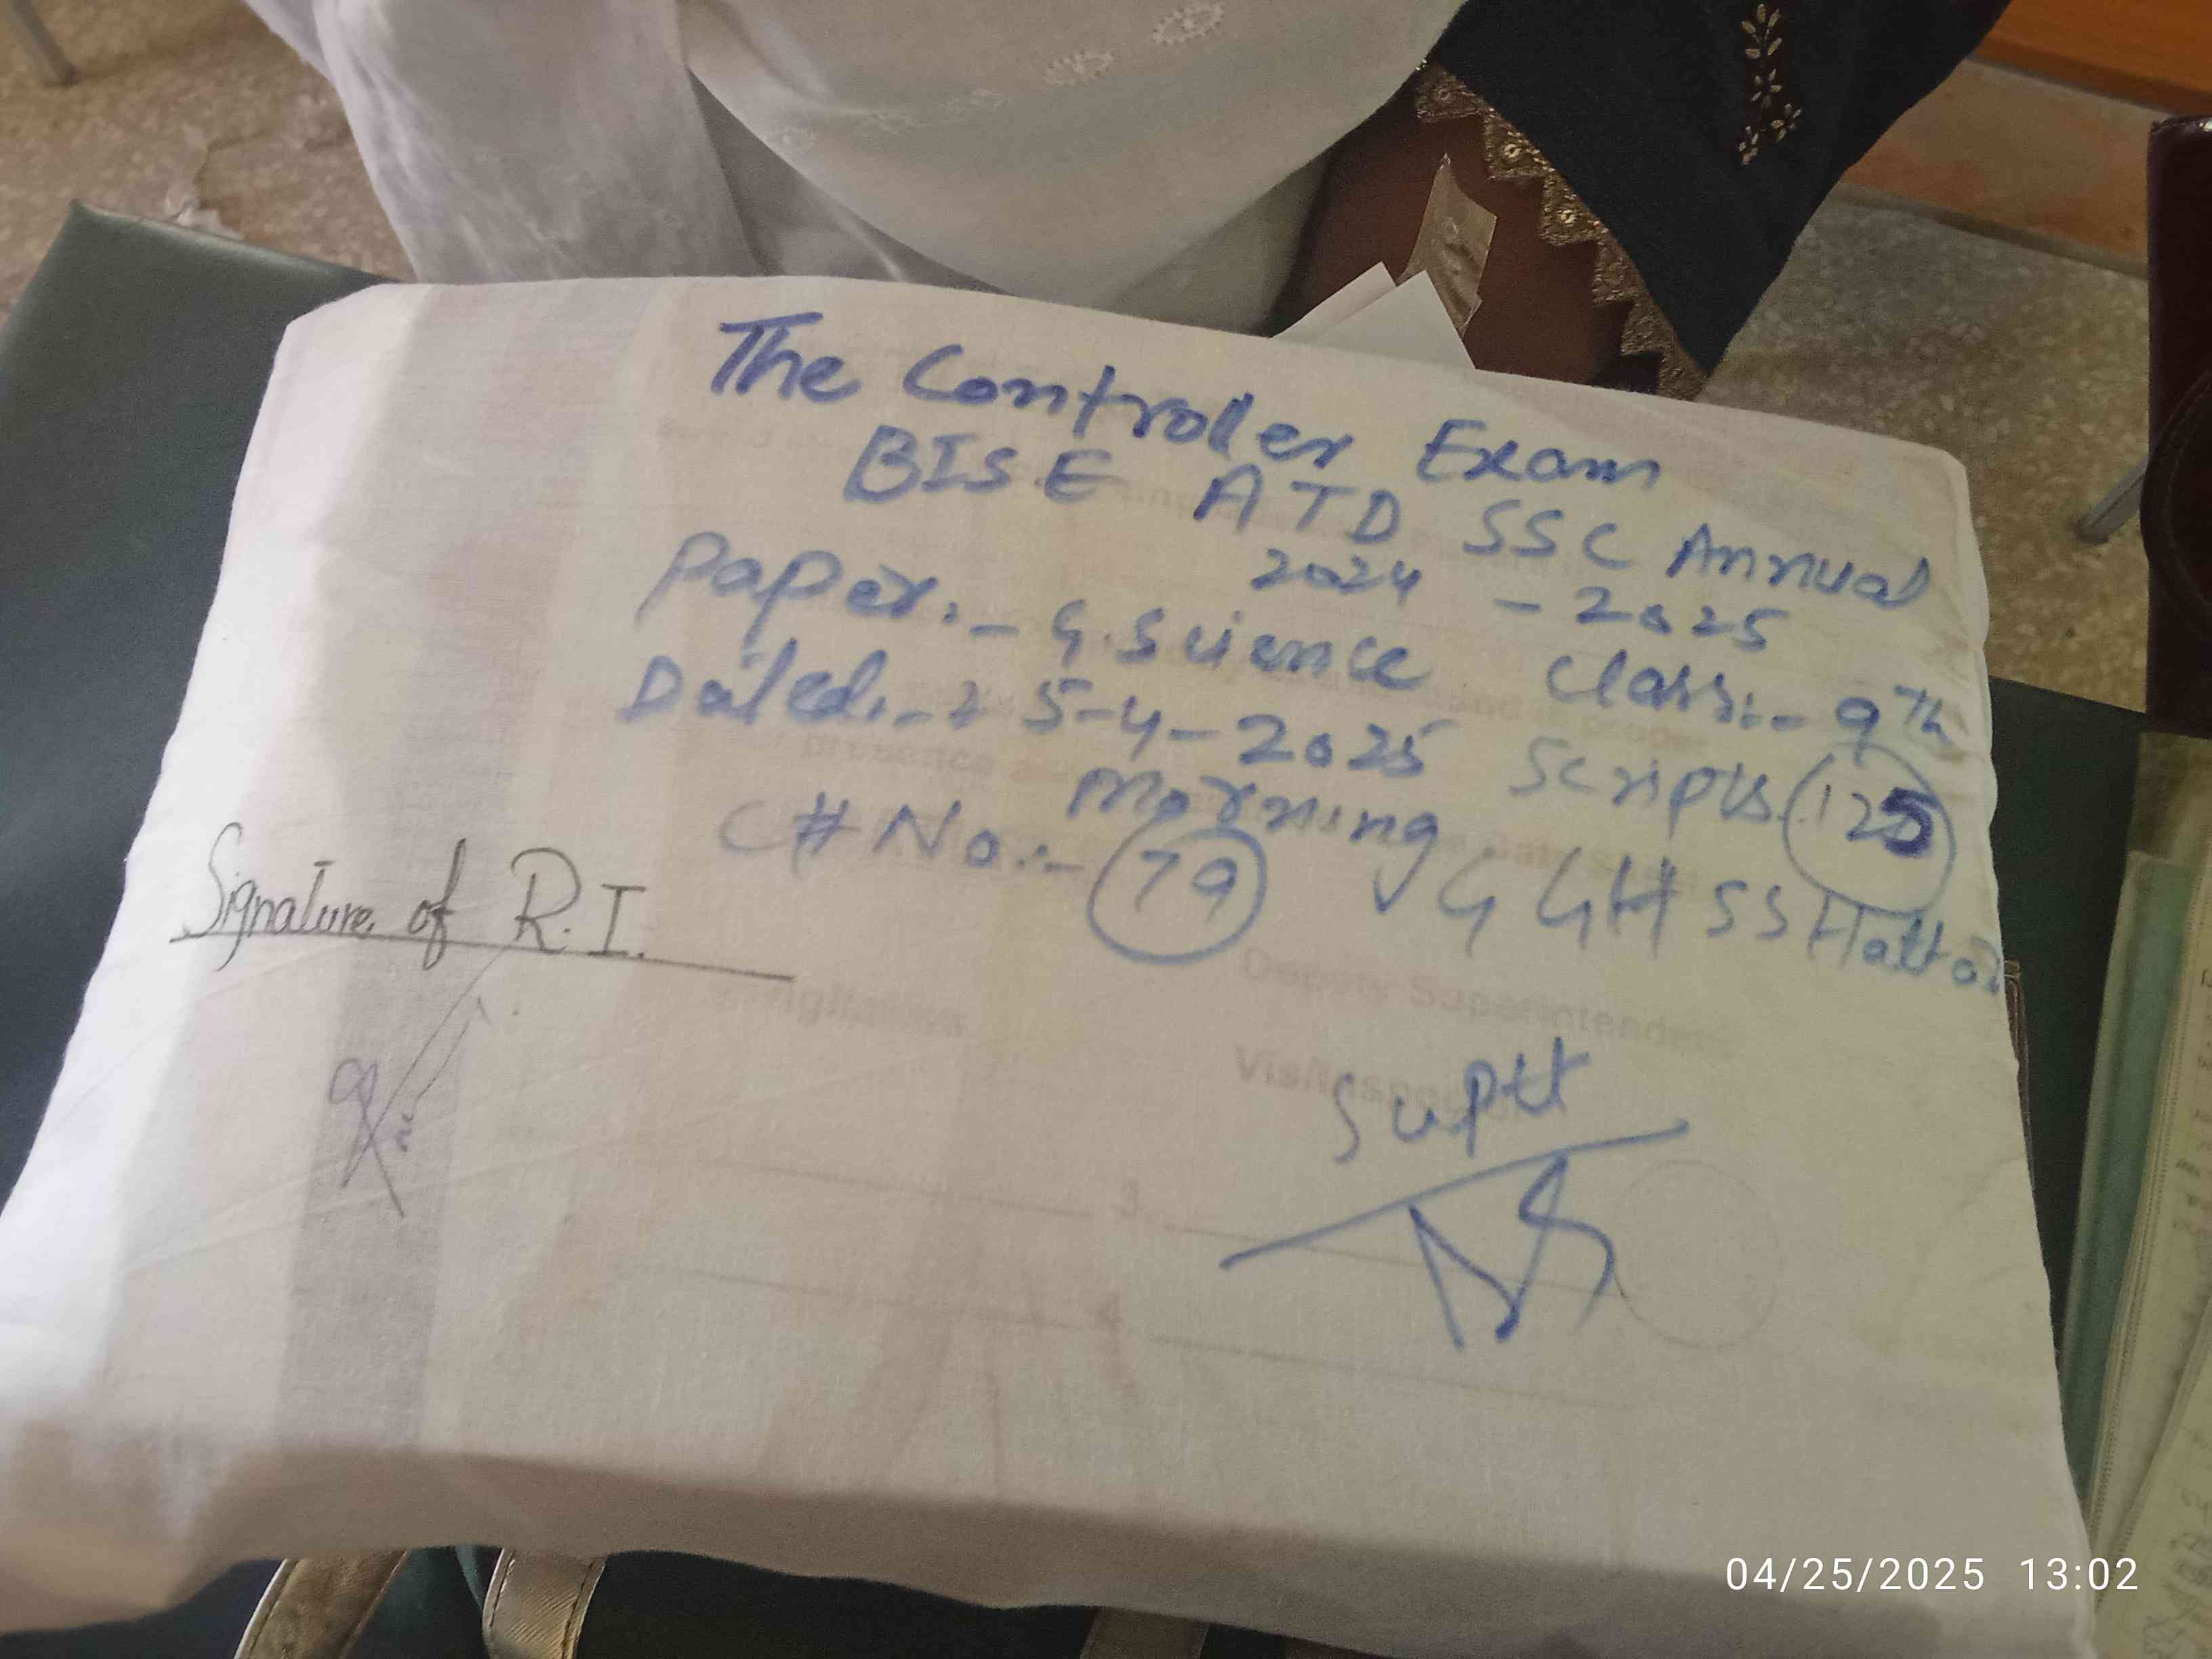 The Controller Exam
BISE ATD SSC Annual
2024 - 2025
Paper:- G.Science Class:- 9th
Dated:- 25-4-2025 Scripts 125
Morning
C# No:- 79 GGHSS Hattar
Signature of R.I.
Deputy Superintendent
Suptt
3.
4.
04/25/2025 13:02